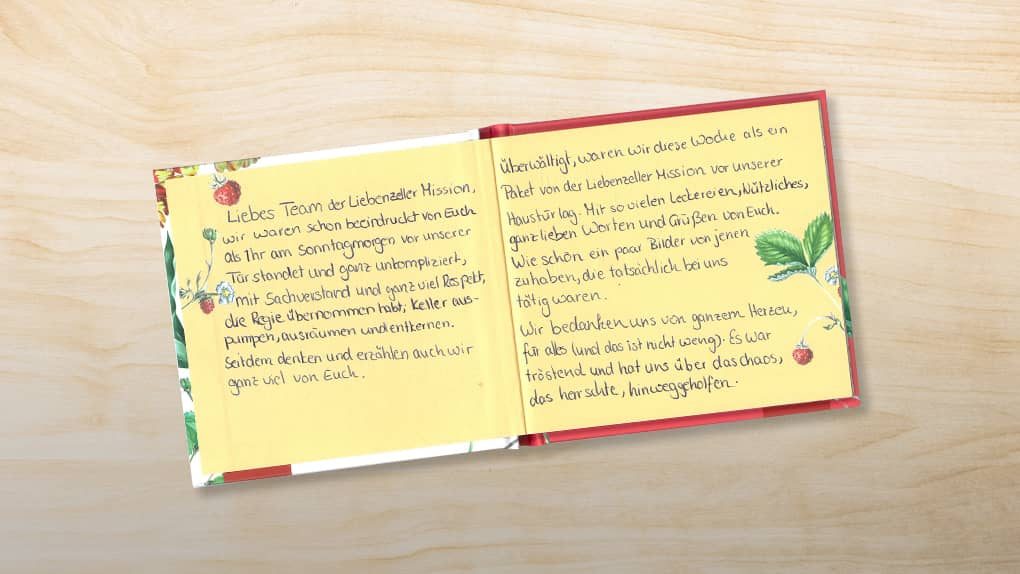 Liebes Team der Liebenzeller Mission,
wir waren schon beeindruckt von Euch
als Ihr am Sonntagmorgen vor unserer
Tür standet und ganz unkompliziert,
mit Sachverstand und ganz viel Respekt,
die Regie übernommen habt, Keller aus-
pumpen, ausräumen und entkernen.
Seitdem denken und erzählen auch wir
ganz viel von Euch.
Überwältigt, waren wir diese Woche als ein
Paket von der Liebenzeller Mission vor unserer
Haustür lag. Mit so vielen Leckereien, Nützliches,
ganz lieben Worten und Grüßen von Euch.
Wie schön ein paar Bilder von jenen
zuhaben, die tatsächlich bei uns
tätig waren.
Wir bedanken uns von ganzem Herzen,
für alles (und das ist nicht weng). Es war
tröstend und hat uns über das chaos,
das herrschte, hinweggeholfen.